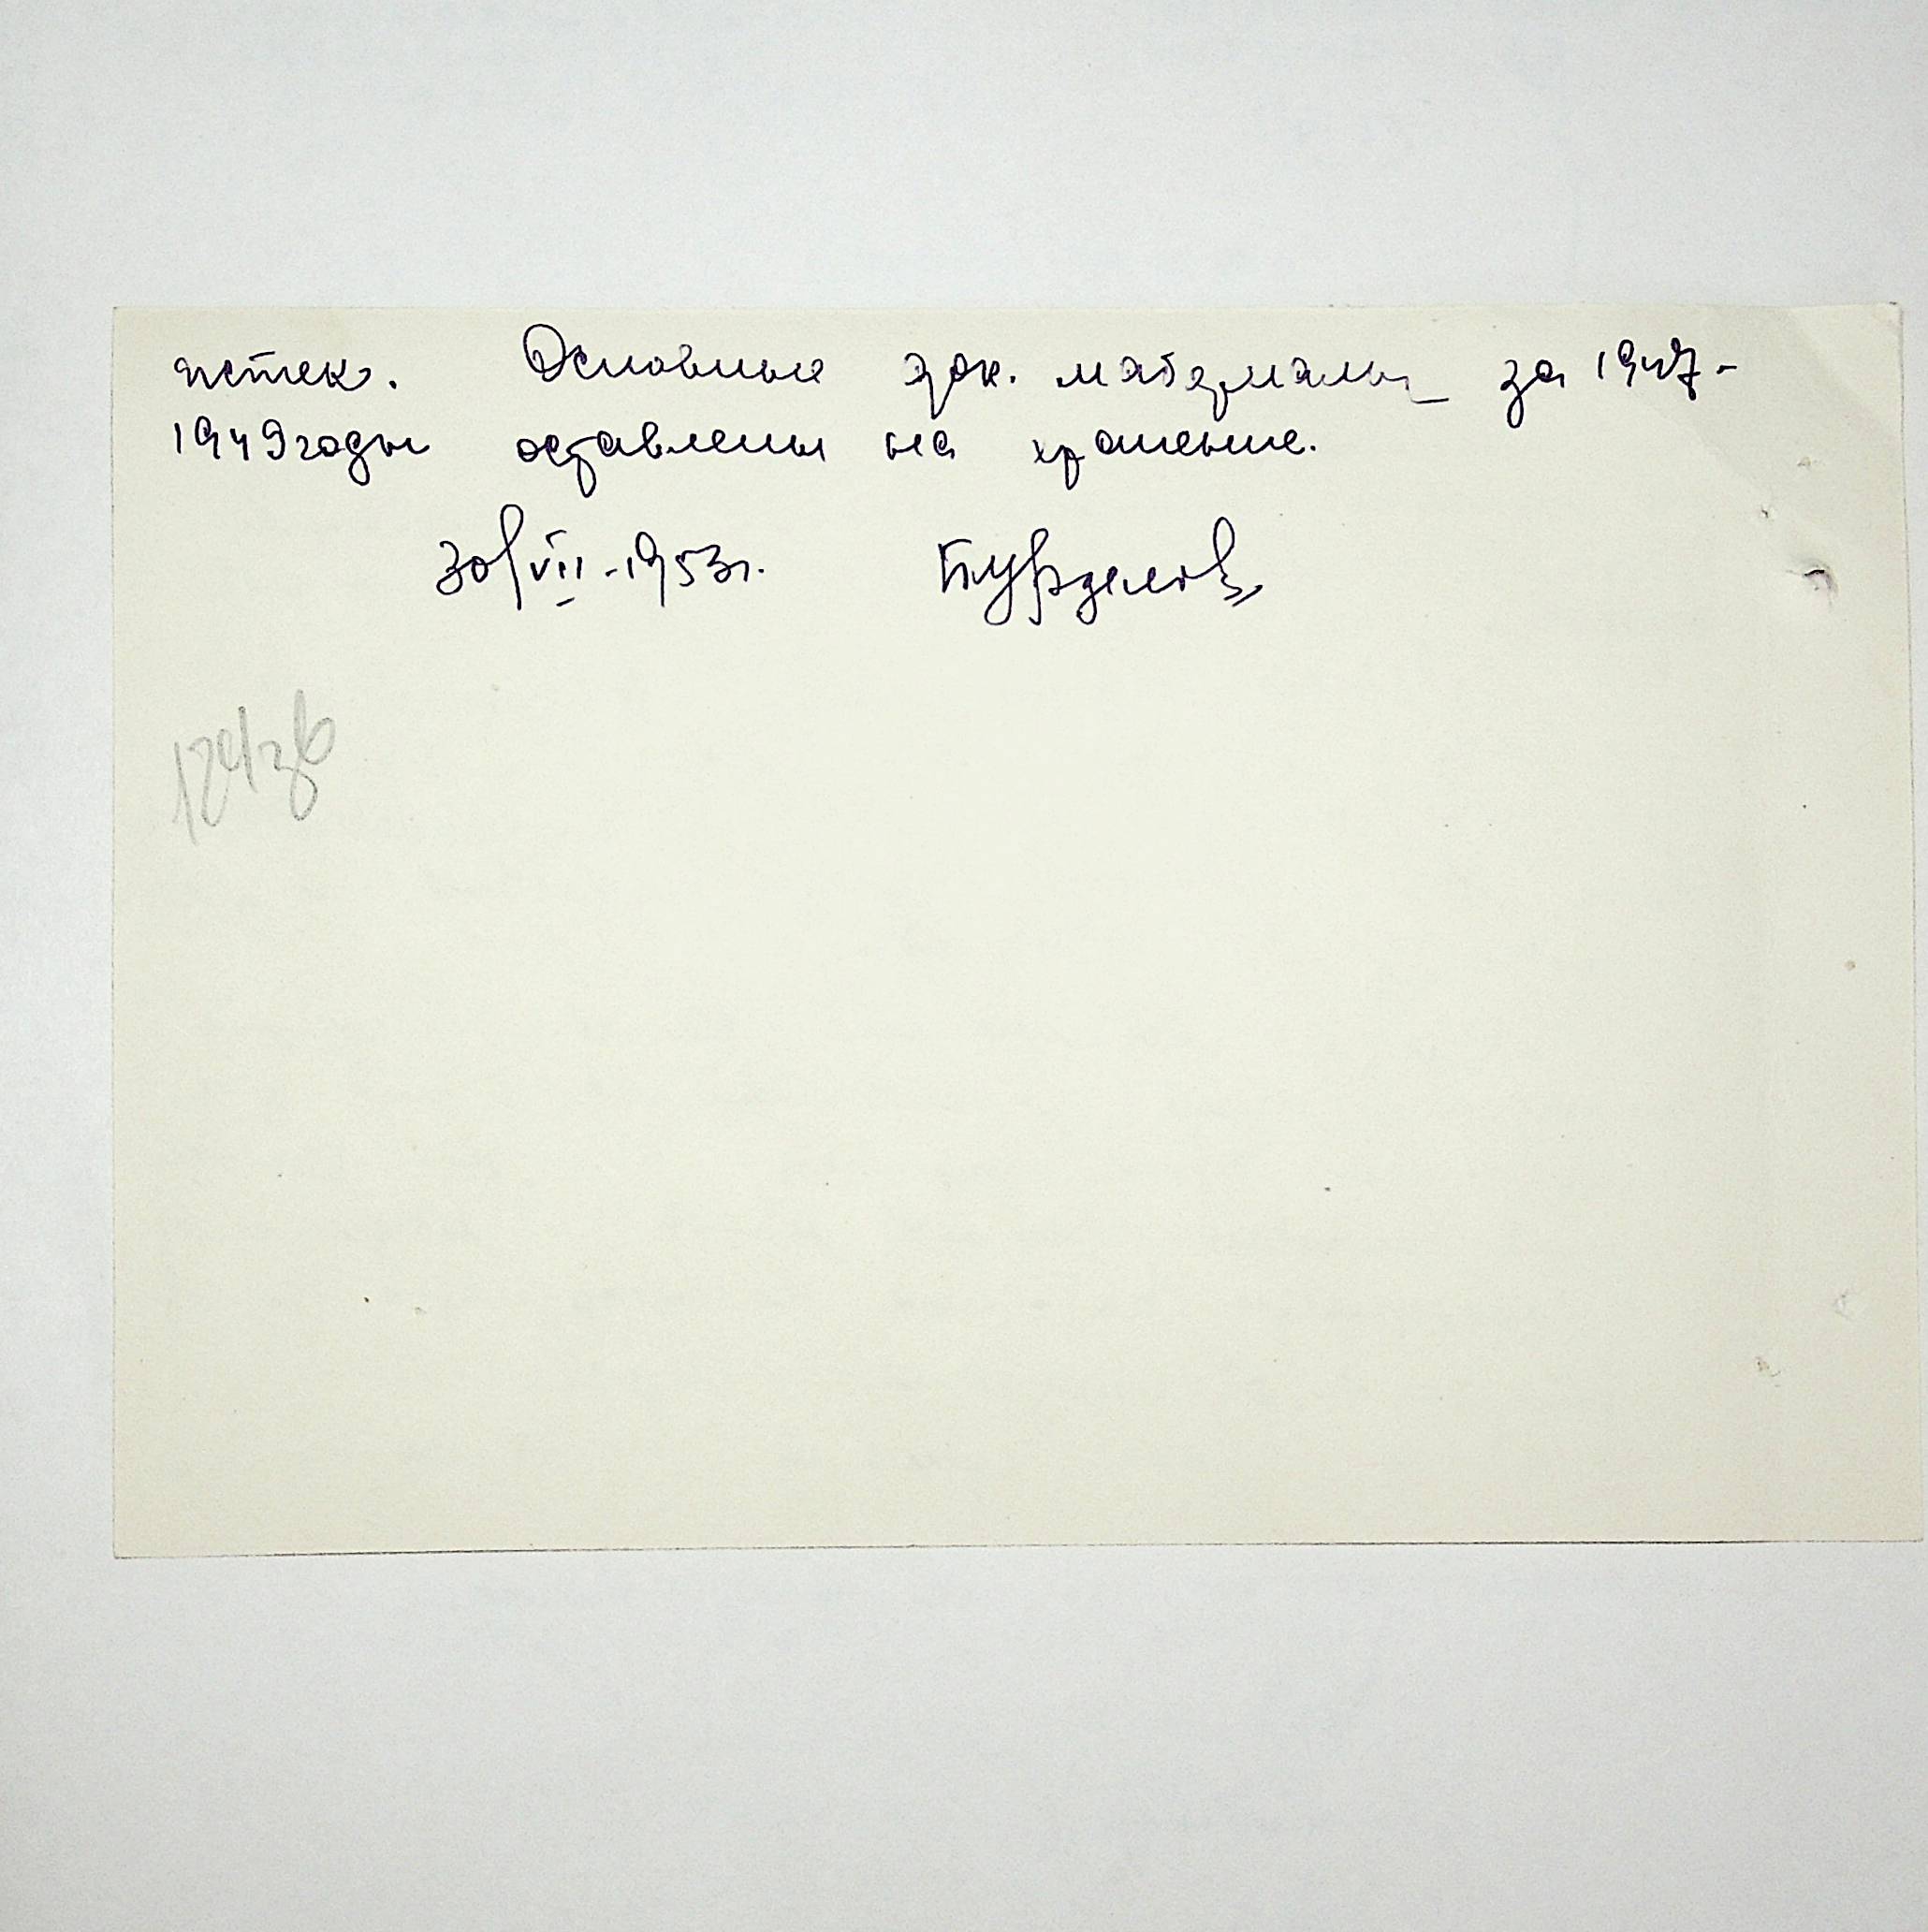 истек. Основные док. материалы за 1947-
1949 годы оставлены на хранение.
30/VII-1953г.